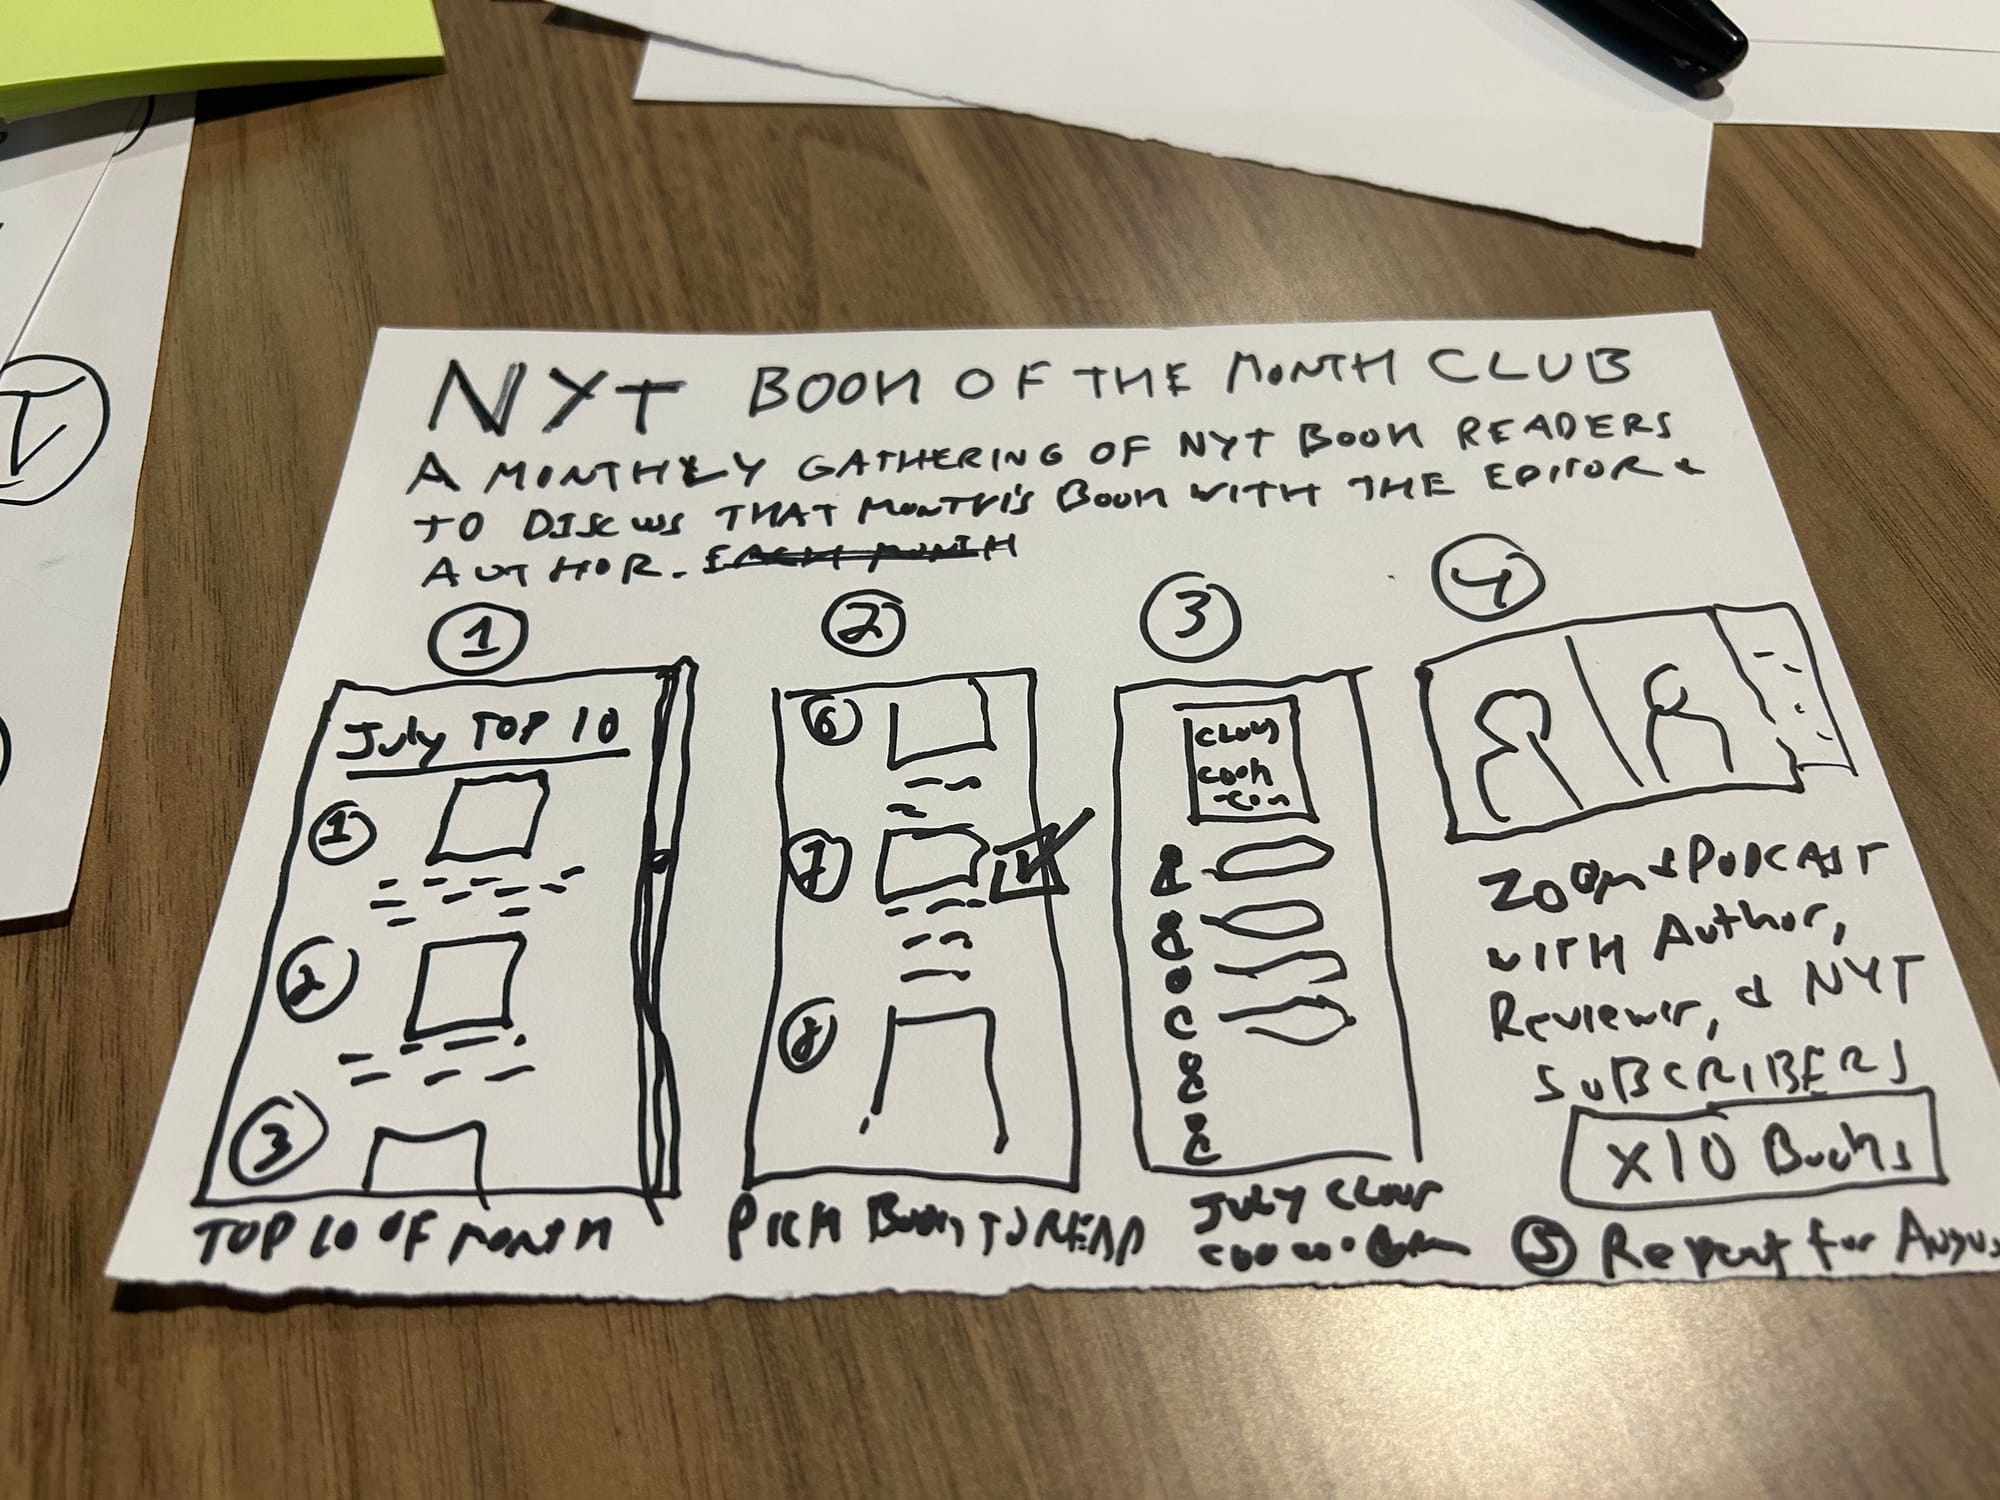 NYT BOOK OF THE MONTH CLUB
A MONTHLY GATHERING OF NYT BOOK READERS
TO DISCUSS THAT MONTH'S BOOK WITH THE EDITOR &
AUTHOR. EACH MONTH
1
2
3
4
July TOP 10
1
2
3
TOP 10 OF MONTH
6
7
8
PICK BOOK TO READ
JULY
ZOOM & PODCAST
WITH Author,
Reviewer, & NYT
SUBSCRIBERS
X10 Books
5 Repeat for Augus